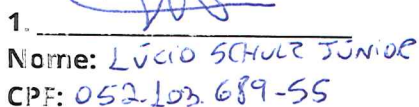 1.
Nome: LÚCIO SCHULZ JÚNIOR
CPF: 052.103.689-55